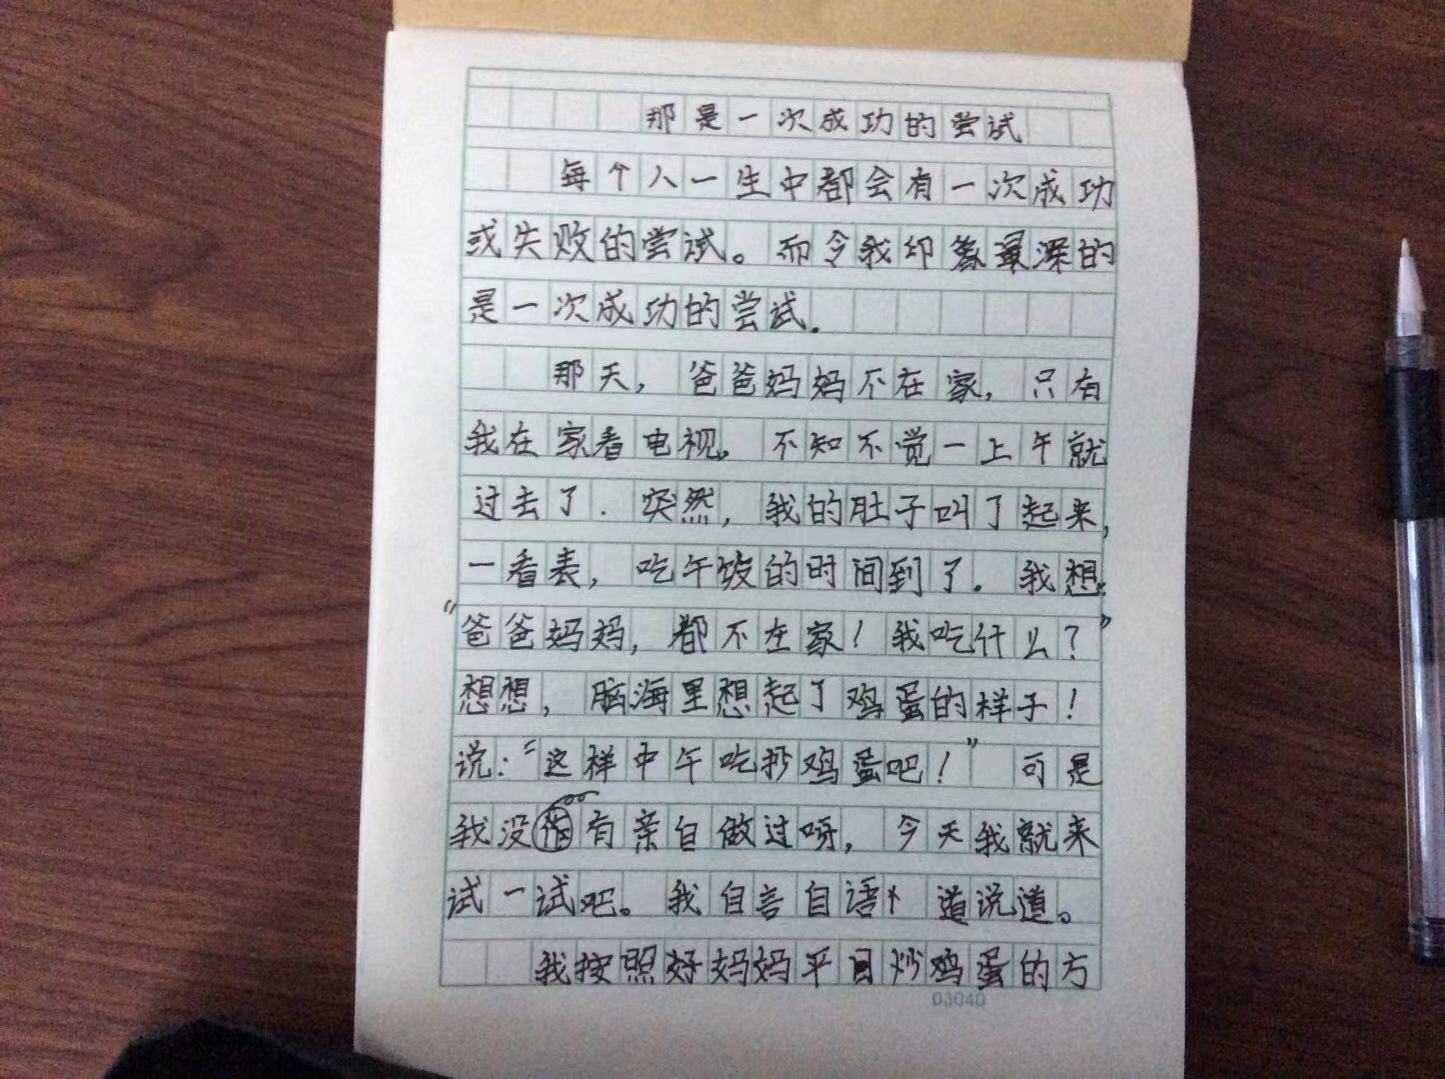 那是一次成功的尝试
每个人一生中都会有一次成功
或失败的尝试。而令我印象最深的
是一次成功的尝试.
那天，爸爸妈妈不在家，只有
我在家看电视，不知不觉一上午就
过去了.突然，我的肚子叫了起来，
一看表，吃午饭的时间到了。我想：
“爸爸妈妈，都不在家！我吃什么？”
想想，脑海里想起了鸡蛋的样子！
说：“这样中午吃抄鸡蛋吧！”可是
我没有亲自做过呀，今天我就来
试一试吧。我自言自语 道说道。
我按照好妈妈平日炒鸡蛋的方
03040